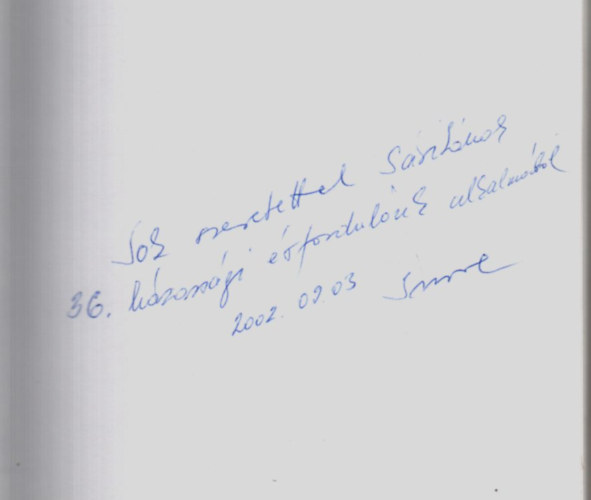 Sok szeretettel Sárikának
36. házassági évfordulónk alkalmából
2002. 09. 03 Imre